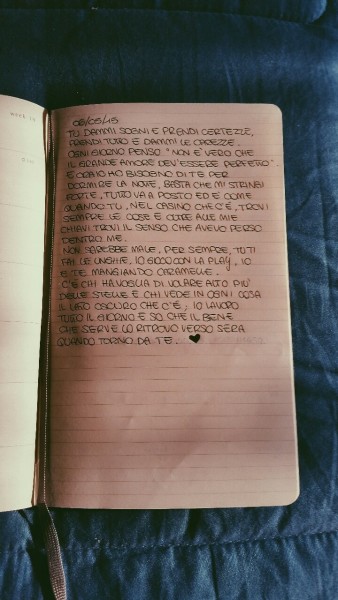 week 19
06/05/15
TU DAMMI SOGNI E PRENDI CERTEZZE,
PRENDI TUTTO E DAMMI LE CAREZZE.
OGNI GIORNO PENSO "NON E' VERO CHE
IL GRANDE AMORE DEV'ESSERE PERFETTO".
E ORA IO HO BISOGNO DI TE PER
DORMIRE LA NOTTE, BASTA CHE MI STRINGI
FORTE, TUTTO VA A POSTO ED E' COME
QUANDO TU, NEL CASINO CHE C'È, TROVI
SEMPRE LE COSE E OLTRE ALLE MIE
CHIAVI TROVI IL SENSO CHE AVEVO PERSO
DENTRO ME.
NON SAREBBE MALE, PER SEMPRE, TU TI
FAI LE UNGHIE, IO GIOCO CON LA PLAY, IO
E TE MANGIANDO CARAMELLE.
C'È CHI HA VOGLIA DI VOLARE ALTO PIU'
DELLE STELLE E CHI VEDE IN OGNI COSA
IL LATO OSCURO CHE C'È; IO LAVORO
TUTTO IL GIORNO E SO CHE IL BENE
CHE SERVE LO RITROVO VERSO SERA
QUANDO TORNO DA TE. ♥